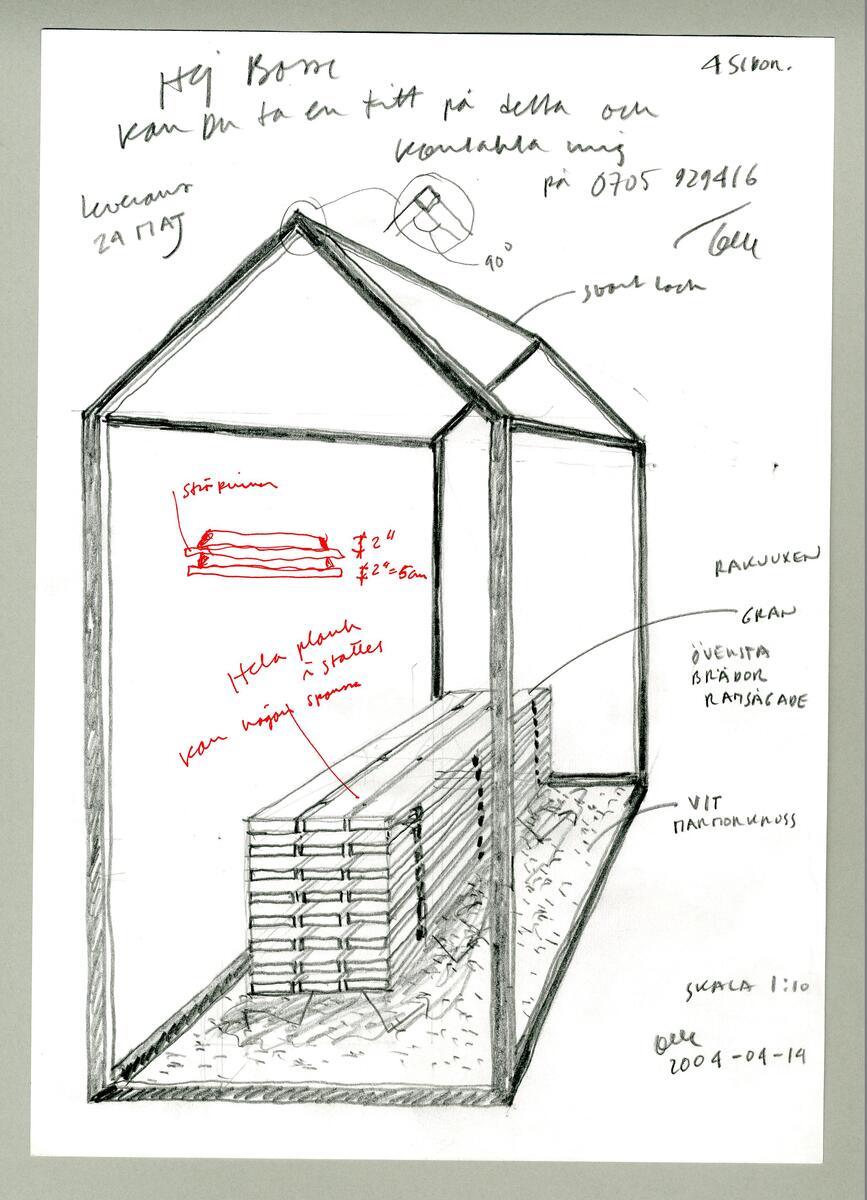 Hej Bosse
4 sidor.
kan Du ta en titt på detta och
kontakta mig
på 0705 929416
Olle
leverans
29 MAJ
90°
svart lack
ströpinnar
2"
2"=5cm
Hela plank
i stället
kan någon sponsra
RAKVUXEN
GRAN
ÖVERSTA
BRÄDOR
RAMSÅGADE
VIT
MARMORKROSS
SKALA 1:10
Olle
2004-04-19